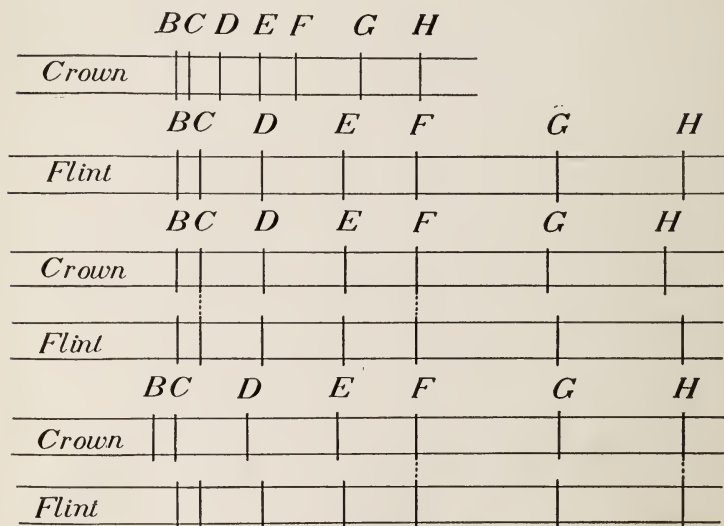 B C D E F G H
Crown
B C D E F G H
Flint
B C D E F G H
Crown
Flint
B C D E F G H
Crown
Flint